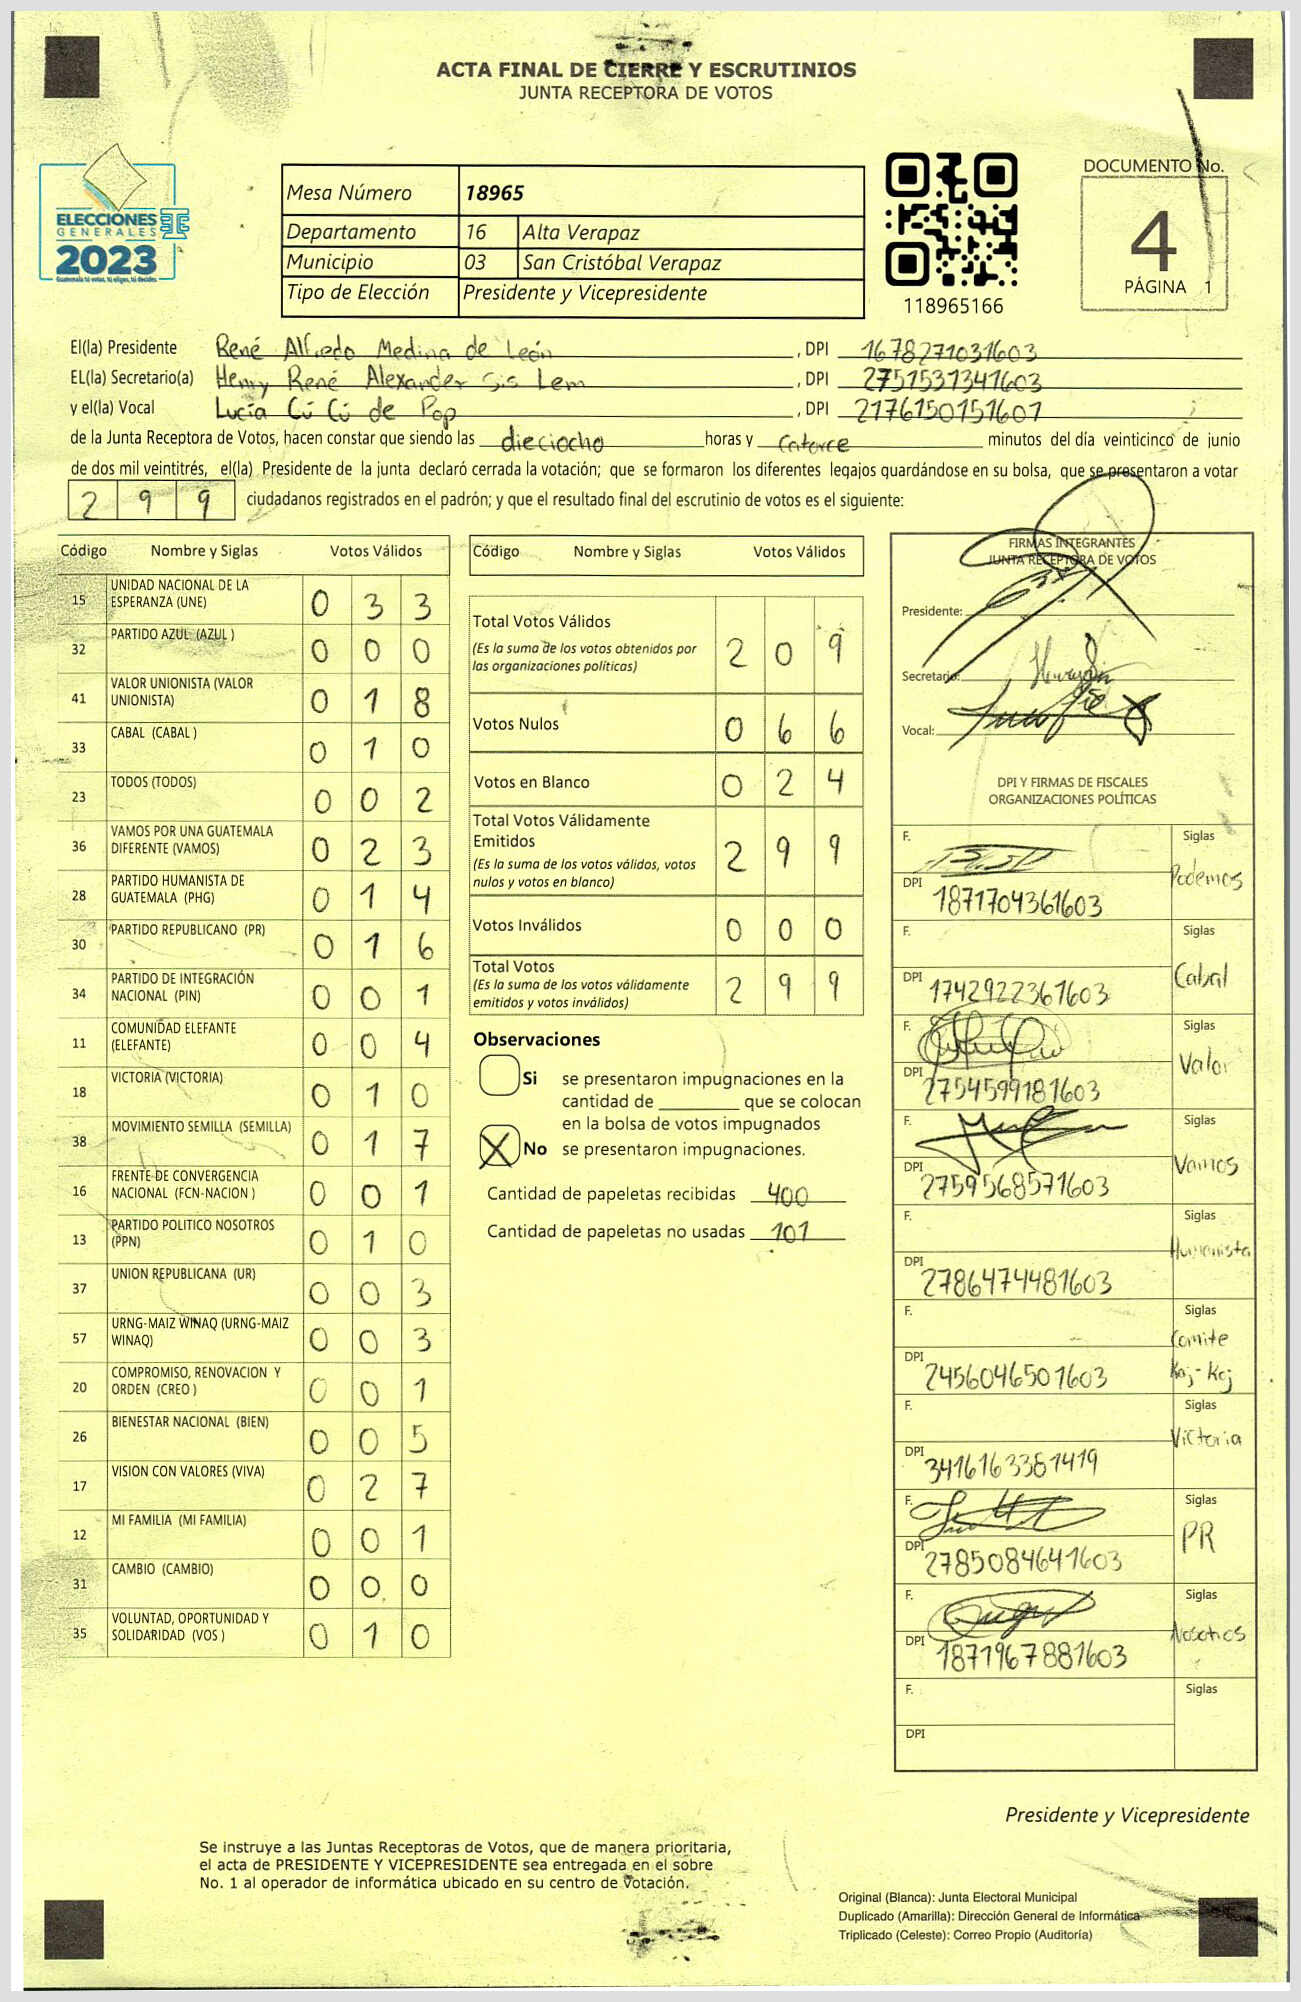 ACTA FINAL DE CIERRE Y ESCRUTINIOS
JUNTA RECEPTORA DE VOTOS
ELECCIONES
GENERALES
2023
Guatemala tú votas, tú eliges, tú decides
Mesa Número 18965
Departamento 16 Alta Verapaz
Municipio 03 San Cristóbal Verapaz
Tipo de Elección Presidente y Vicepresidente
118965166
DOCUMENTO No.
4
PÁGINA 1
El(la) Presidente René Alfredo Medina de León , DPI 1678271031603
EL(la) Secretario(a) Henry René Alexander Sis Lem , DPI 2751531341603
y el(la) Vocal Lucía Cú Cú de Pop , DPI 2176150151601
de la Junta Receptora de Votos, hacen constar que siendo las dieciocho horas y catorce minutos del día veinticinco de junio
de dos mil veintitrés, el(la) Presidente de la junta declaró cerrada la votación; que se formaron los diferentes legajos guardándose en su bolsa, que se presentaron a votar
299 ciudadanos registrados en el padrón; y que el resultado final del escrutinio de votos es el siguiente:
Código Nombre y Siglas Votos Válidos
15 UNIDAD NACIONAL DE LA ESPERANZA (UNE) 0 3 3
32 PARTIDO AZUL (AZUL ) 0 0 0
41 VALOR UNIONISTA (VALOR UNIONISTA) 0 1 8
33 CABAL (CABAL ) 0 1 0
23 TODOS (TODOS) 0 0 2
36 VAMOS POR UNA GUATEMALA DIFERENTE (VAMOS) 0 2 3
28 PARTIDO HUMANISTA DE GUATEMALA (PHG) 0 1 4
30 PARTIDO REPUBLICANO (PR) 0 1 6
34 PARTIDO DE INTEGRACIÓN NACIONAL (PIN) 0 0 1
11 COMUNIDAD ELEFANTE (ELEFANTE) 0 0 4
18 VICTORIA (VICTORIA) 0 1 0
38 MOVIMIENTO SEMILLA (SEMILLA) 0 1 7
16 FRENTE DE CONVERGENCIA NACIONAL (FCN-NACION ) 0 0 1
13 PARTIDO POLITICO NOSOTROS (PPN) 0 1 0
37 UNION REPUBLICANA (UR) 0 0 3
57 URNG-MAIZ WINAQ (URNG-MAIZ WINAQ) 0 0 3
20 COMPROMISO, RENOVACION Y ORDEN (CREO ) 0 0 1
26 BIENESTAR NACIONAL (BIEN) 0 0 5
17 VISION CON VALORES (VIVA) 0 2 7
12 MI FAMILIA (MI FAMILIA) 0 0 1
31 CAMBIO (CAMBIO) 0 0 0
35 VOLUNTAD, OPORTUNIDAD Y SOLIDARIDAD (VOS ) 0 1 0
Código Nombre y Siglas Votos Válidos
Total Votos Válidos 2 0 9
(Es la suma de los votos obtenidos por
las organizaciones políticas)
Votos Nulos 0 6 6
Votos en Blanco 0 2 4
Total Votos Válidamente
Emitidos 2 9 9
(Es la suma de los votos válidos, votos
nulos y votos en blanco)
Votos Inválidos 0 0 0
Total Votos 2 9 9
(Es la suma de los votos válidamente
emitidos y votos inválidos)
Observaciones
Si se presentaron impugnaciones en la
cantidad de ________ que se colocan
en la bolsa de votos impugnados
X No se presentaron impugnaciones.
Cantidad de papeletas recibidas 400
Cantidad de papeletas no usadas 101
FIRMAS INTEGRANTES
JUNTA RECEPTORA DE VOTOS
Presidente:
Secretario:
Vocal:
DPI Y FIRMAS DE FISCALES
ORGANIZACIONES POLÍTICAS
F. Siglas Podemos
DPI 1871704361603
F. Siglas Cabal
DPI 1742922361603
F. Siglas Valor
DPI 2754599181603
F. Siglas Vamos
DPI 2759568571603
F. Siglas Humanista
DPI 2786474481603
F. Siglas Comite Koj-Koj
DPI 2456046501603
F. Siglas Victoria
DPI 3416163381419
F. Siglas PR
DPI 2785084641603
F. Siglas Nosotros
DPI 1871967881603
F. Siglas
DPI
Presidente y Vicepresidente
Se instruye a las Juntas Receptoras de Votos, que de manera prioritaria,
el acta de PRESIDENTE Y VICEPRESIDENTE sea entregada en el sobre
No. 1 al operador de informática ubicado en su centro de votación.
Original (Blanca): Junta Electoral Municipal
Duplicado (Amarilla): Dirección General de Informática
Triplicado (Celeste): Correo Propio (Auditoría)